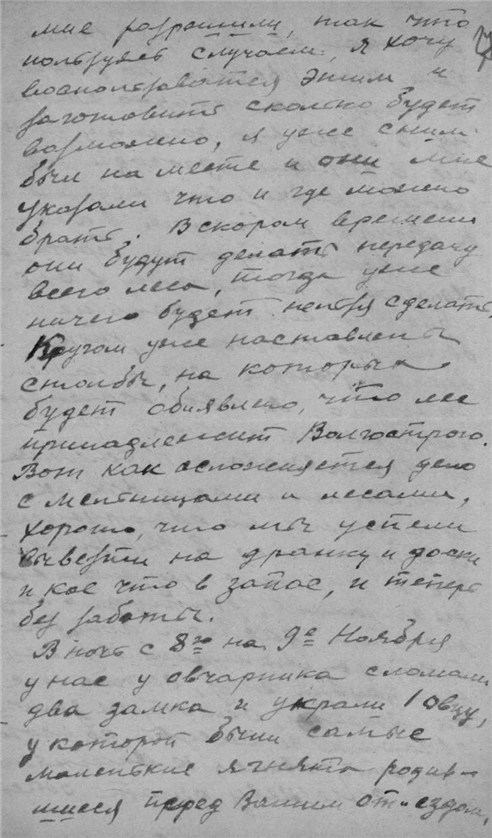 мне разрешили, так что
пользуясь случаем, я хочу
воспользоватся этим и
заготовить сколько будет
возможно, я уже с ними
был на месте и они мне
указали что и где можно
брать. Вскором времени
они будут делать передачу
всего леса, тогда уже
ничего будет нельзя сделать,
Кругом уже наставлены
столбы, на которых
будет обиявлено, что лес
принадлежит Волгострою.
Вот как осложняется дело
с мельницами и лесами,
хорошо, что мы успели
вывезти на дранку и доски
и кое что в запас, и теперь
без заботы.
В ночь с 8го на 9е Ноября
у нас у овчарника сломали
два замка и украли 1 овцу,
у которой были самые
маленькие ягнята родив-
шиеся перед Вашим от-ездом,